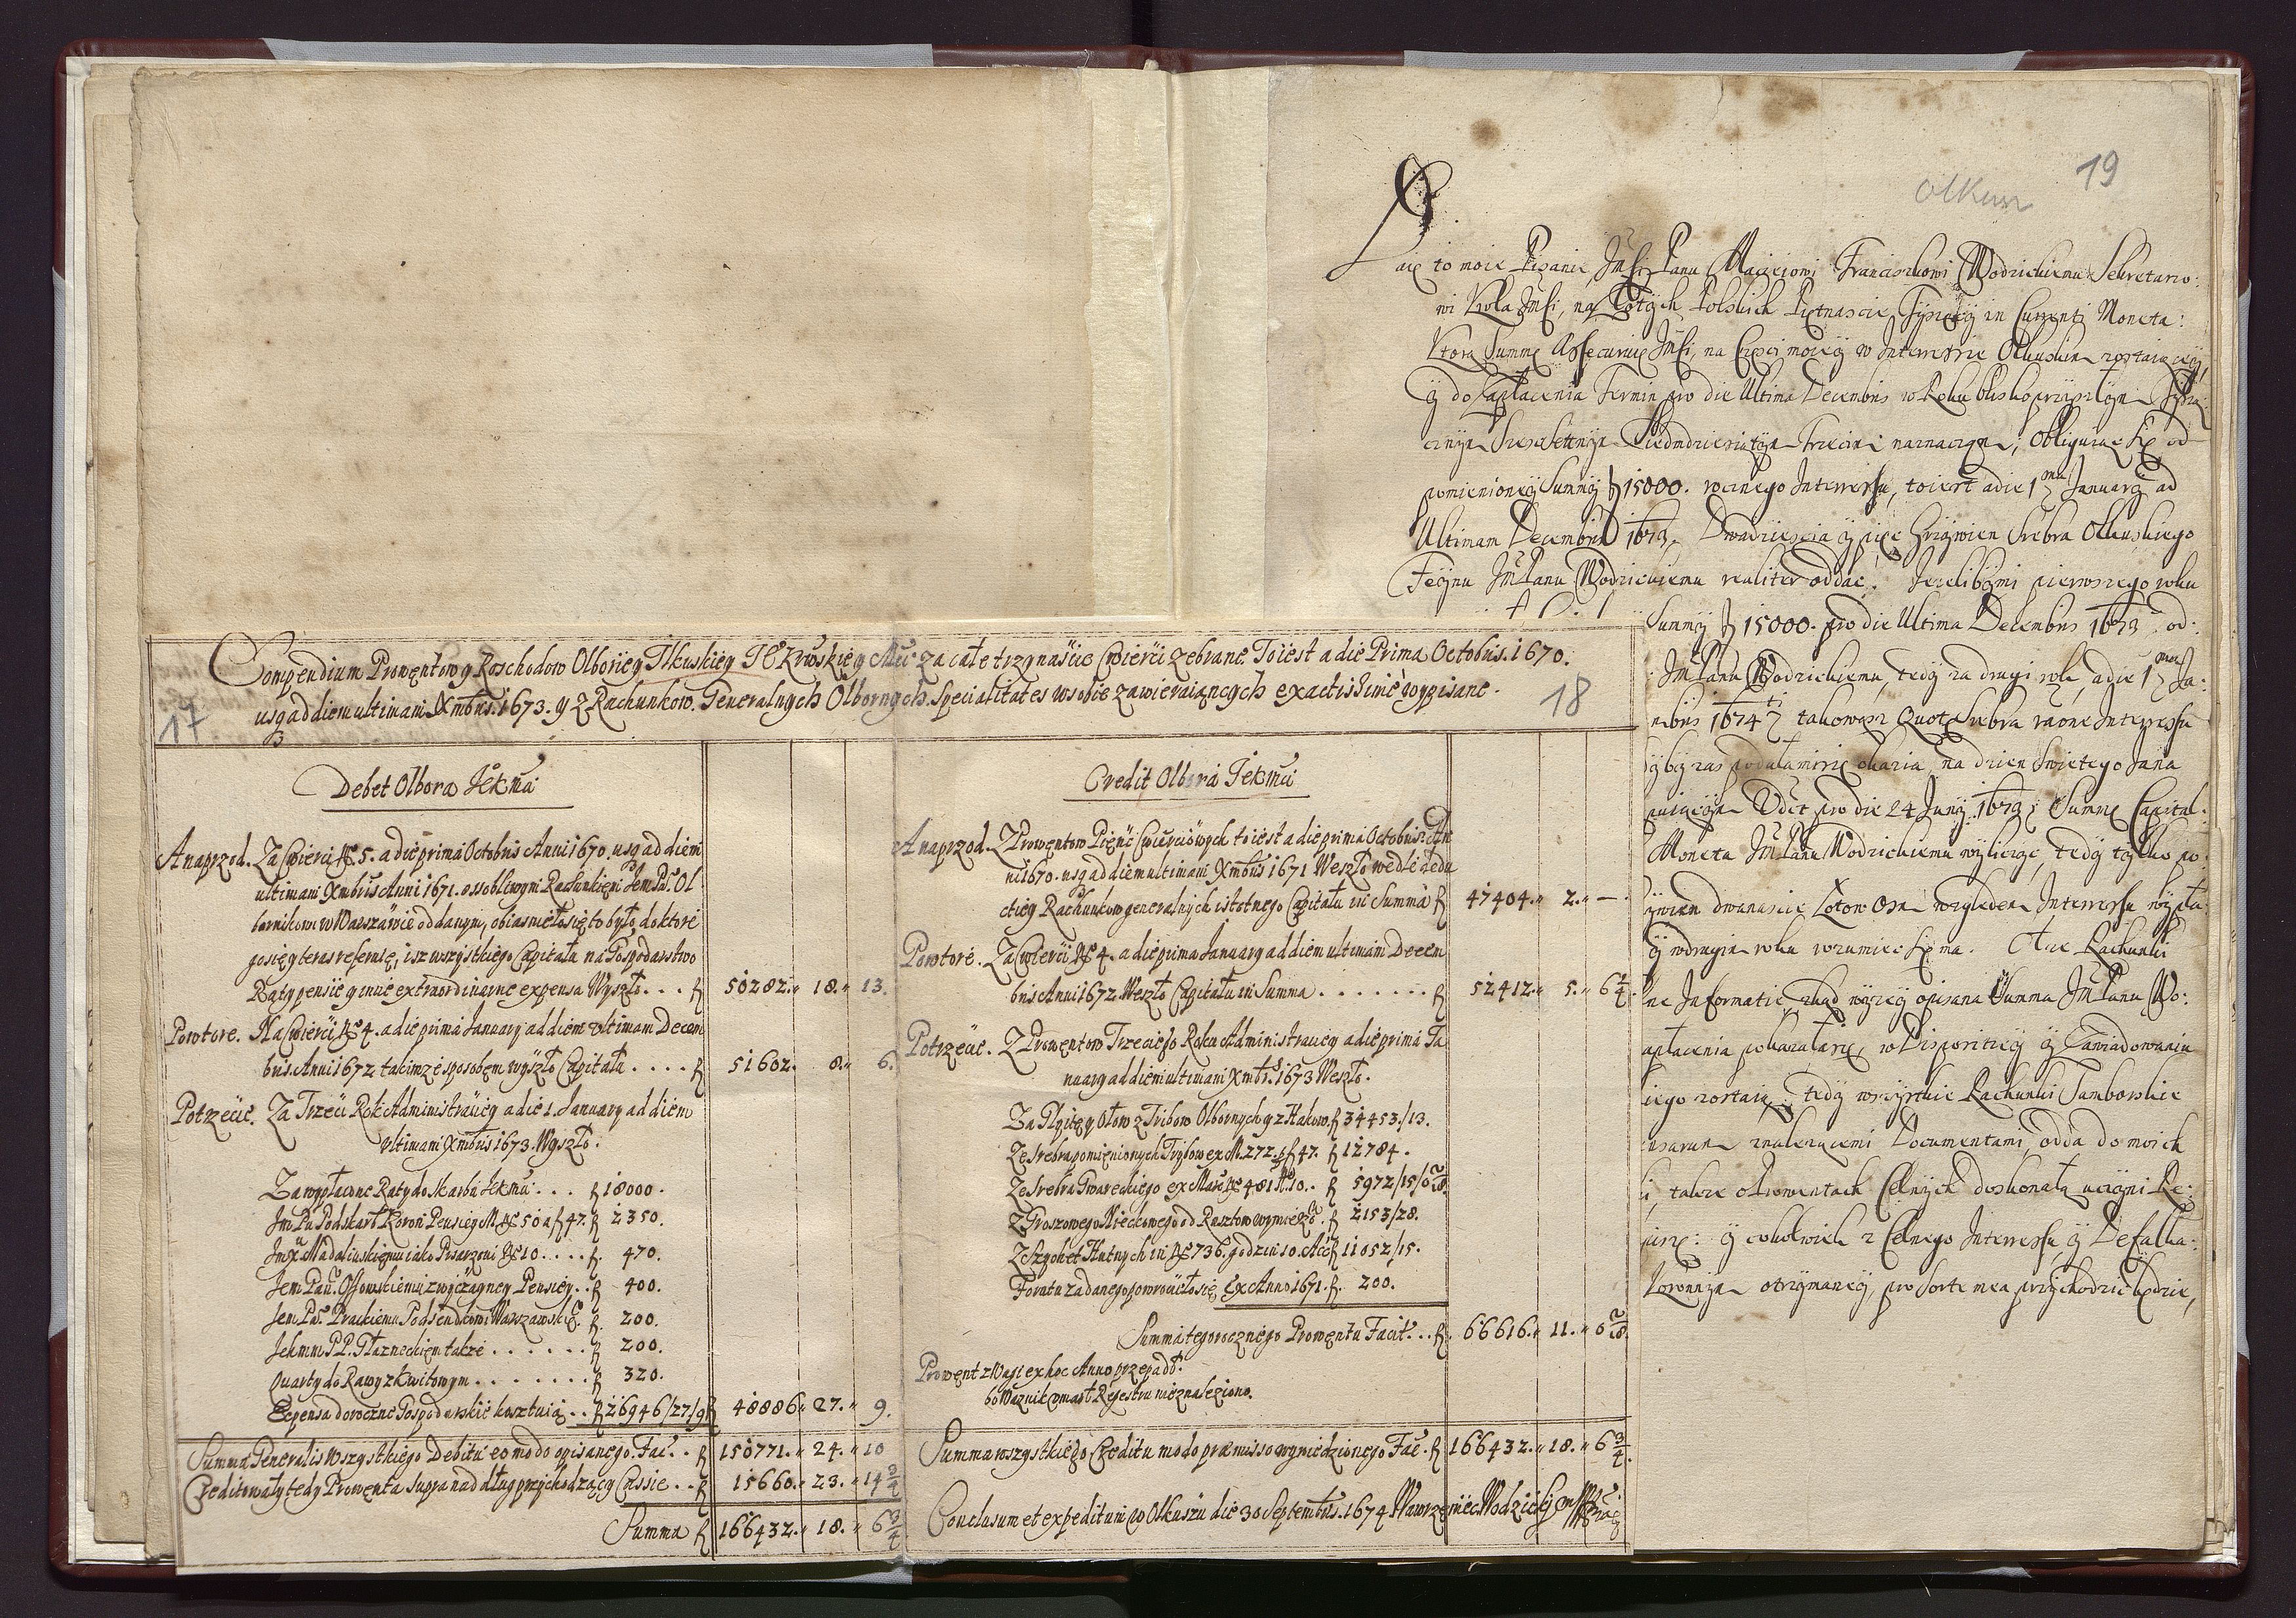 19
Olkusz
Daię to moie Pisanie JMści Panu Maciejowi Franciszkowi Wodzickiemu Sekretario:
wi Krola JMści, na Złotych Polskich Piętnascie Tysięcy in Currenti Moneta:
Ktorą Summę Assecuruię JMści, na Częsci moiey w Interessie Olkuskim zostaiącey,
y do Zapłacenia Termin pro die Ultima Decembris w Roku blisko przyszłym Tysią:
cznym Szescsetnym Siedmdziesiątym Trzecim naznaczam; Obliguiąc się od
pomienioney Summy f 15000. rocznego Interessu, to iest a die 1ma January ad
Ultimam Decembris 1673. Dwadziescia y pięć Grzywien Srebra Olkuskiego
Temu JM Panu Wodzickiemu realiter oddać. Jezelibymi pierwszego roku
Summy f 15000. pro die Ultima Decembris 1673 od:
JM Panu Wodzickiemu, tedy za drugi rok, a die 1ma Ja:
mbris 1674ti takowąsz Quotę Srebra racione Interessu
by zas podała mi się okazia, na dzien Swiętego Jana
Videt pro die 24 Juny 1673 Summę Capital:
Moneta JM Panu Wodzickiemu wyliczyć, tedy tylko po:
zywien dwanascie Łotow Osm względem Interessu
y w drugim roku rozumiec się ma. A ze Rachunki
ne Informatie, zkąd wyzey opisana Summa JM Panu Wo:
apłacenia pokazałaby, w Dispozitiey y Zawiadowaniu
iego zostaią, tedy wszystkie Rachunki Samborskie
należącemi Documentami, odda do moich
i, takze o Prowentach Celnych doskonałą uczyni Re:
y cokolwiek z Celnego Interessu y Defalka:
Koronnym otrzymaney, pro sorte mea przychodzić będzie,
Compendium Prowentow y Roschodow Olborney Ilkuskiey JE Krolewskiey Mci za całe trzynaście Cwierci zebrane. To iest a die Prima Octobris. 1670.
usq ad diem ultimam Xmbris. 1673. y z Rachunkow Generalnych Olbornych Specialitates w sobie zawieraiących exactissime wypisane.
17
18
Debet Olbora JEKMci
Anaprzod. Za Cwierci No 5. a die prima Octobris Anni 1670. usq ad diem
ultimam Xmbris Anni 1671. ossobliwym Rachunkiem Jem Pu. Ol
bornikom w Warszawie oddanym, obiasniło się to było do ktore
go się y teras referuię, isz wszystkiego Capitału na Gospodarstwo
Raty pensie y insze extraordinarne expensa Wyszło . . . f 50282. 18. 13.
Powtore. Na Cwierci No 4. a die prima January ad diem ultimam Decem
bris Anni 1672 takimze sposobem wyszło Capitału . . . . f 51602. 8. 6.
Potrzecie. Za Trzeci Rok Administraciey a die 1. January ad diem
ultimam Xmbris 1673. Wyszło.
Za wypłacone Raty do Skarbu JEKMci . . . f 18000.
Jm Pu Podskarb Koron Pensiey M. No 50 a f 47. f 2350.
Jmx Madalinskiemu iako Pisarzowi No 10 . . . . f. 470.
Jem Pau. Ossowskiemu zwyczayney Pensiey . . f 400.
Jem Pu. Prackiemu Podsendkowi Warszawskie. f. 200.
Jehmm PP. Płazneckiem takze . . . . . . f 200.
Quarty do Rawy z kwitowym . . . . . . . f 320.
Expensa doroczne Gospodarskie kosztuią . . f 26946/27/9 f 48886. 27. 9.
Summa Generalis wszystkiego Debitu eo modo opisanego Fac . f 150771. 24. 10
Creditowały tedy Prowenta supra nad dług przychodzący Cassie . . f 15660. 23. 14 3/4
Summa f 166432. 18. 6 3/4
Credit Olbora JEKMci
Anaprzod. Z Prowentow Piąci Cwierciowych to iest a die prima Octobris An
ni 1670. usq ad diem ultimam Xmbris 1671 Weszło wedle redu
ctiey Rachunkow generalnych istotnego Capitału in Summa f 47404. 2. —.
Powtore. Za Cwierci No 4. a die prima January ad diem ultimam Decem
bris Anni 1672 Weszło Capitału in Summa . . . . . . . f 52412. 5. 6 1/4.
Potrzecie. Z Prowentow Trzeciego Roku Administraciey a die prima Ja
nuary ad diem ultimam Xmbr. 1673 Weszło.
Za Glyitę y Ołow z Tribow Olbornych y z Hakow. f 34453./13.
Ze srebra pomienionych Trybow ex M. 272. p f 47. f 12784.
Ze srebra Gwareckiego ex Marc No 481 10. f 5972/15/6
Z Groszowego Nieckowego od Rusztow wyniosło . f 2153/28.
Z Szychet Hutnych in No 736. godzin 10. Acc f 11052/15.
Foratu zadanego powrociło się Ex Anno 1671. f. 200.
Summa tegorocznego Prowentu Facit . . f. 66616. 11. 6
Prowent z Wagi ex hoc Anno przepadł.
bo Waznik umarł Rejestru nieznaleziono.
Summa wszystkiego Creditu modo præmisso wywiedzionego Fac . f 166432. 18. 6 3/4.
Conclusum et expeditum w Olkuszu die 30 Septembris. 1674 Wawrzeniec Wodzicki